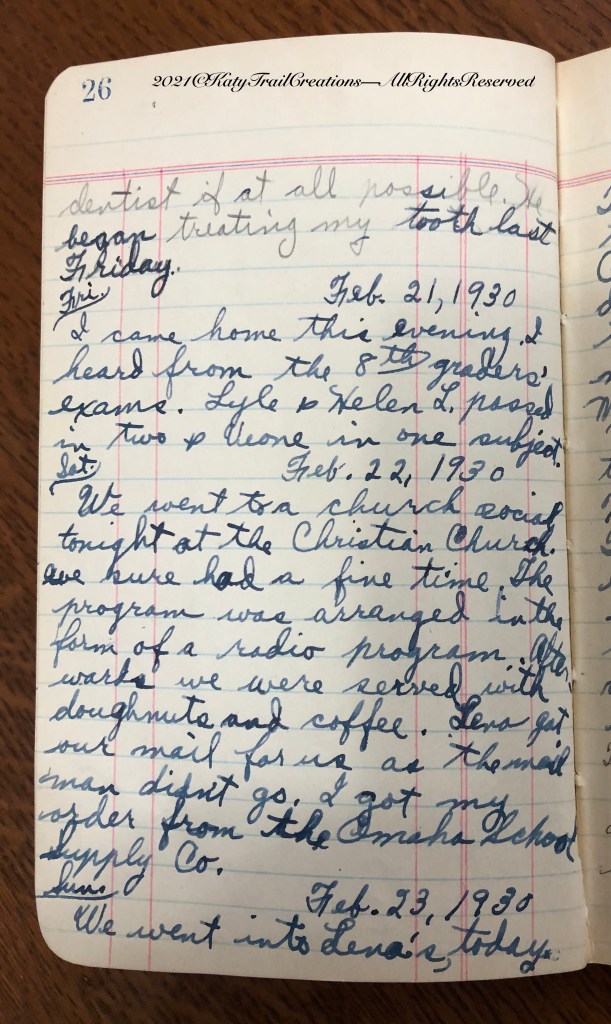 26
2021©KatyTrailCreations—AllRightsReserved
dentist if at all possible. He
began treating my tooth last
Friday.
Fri.
Feb. 21, 1930
I came home this evening. I
heard from the 8th graders'
exams. Lyle & Helen L. passed
in two & Veone in one subject.
Sat.
Feb. 22, 1930
We went to a church social
tonight at the Christian Church.
We sure had a fine time. The
program was arranged in the
form of a radio program. After-
wards we were served with
doughnuts and coffee. Lena got
our mail for us as the mail
man didn't go. I got my
order from the Omaha School
Supply Co.
Sun.
Feb. 23, 1930
We went into Lena's, today.